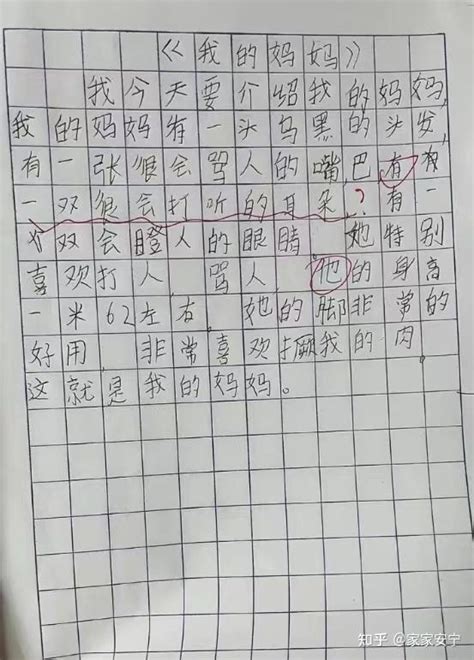 《我的妈妈》
我今天要介绍我的妈妈,
我的妈妈有一头乌黑的头发,
有一张很会骂人的嘴巴有有
一双很会打听的耳朵?有一
双会瞪人的眼睛,她特别
喜欢打人,骂人,他的身高
一米62左右,她的脚非常的
好用,非常喜欢撅我的肉,
这就是我的妈妈。
知乎 @家家安宁